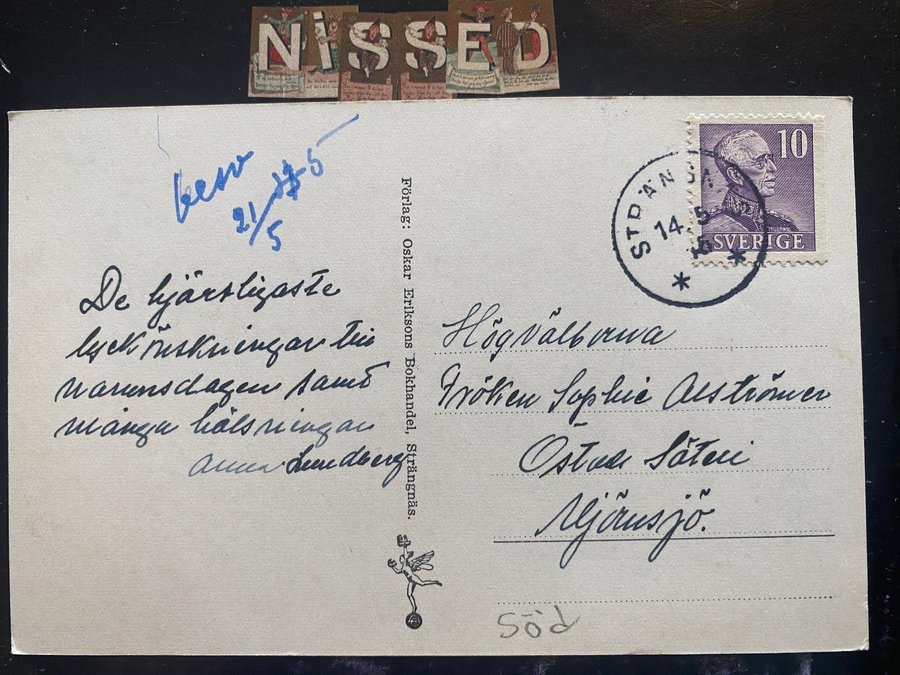 NiSSED
besv
21/5
De hjärtligaste
lyckönskningar till
namnsdagen samt
många hälsningar
Anna Lundberg
Förlag: Oskar Eriksons Bokhandel, Strängnäs.
STRÄNGNÄS
14.5
10
SVERIGE
Högvälborna
Fröken Sophie Alströmer
Östads Säteri
Mjörnsjö.
Söd